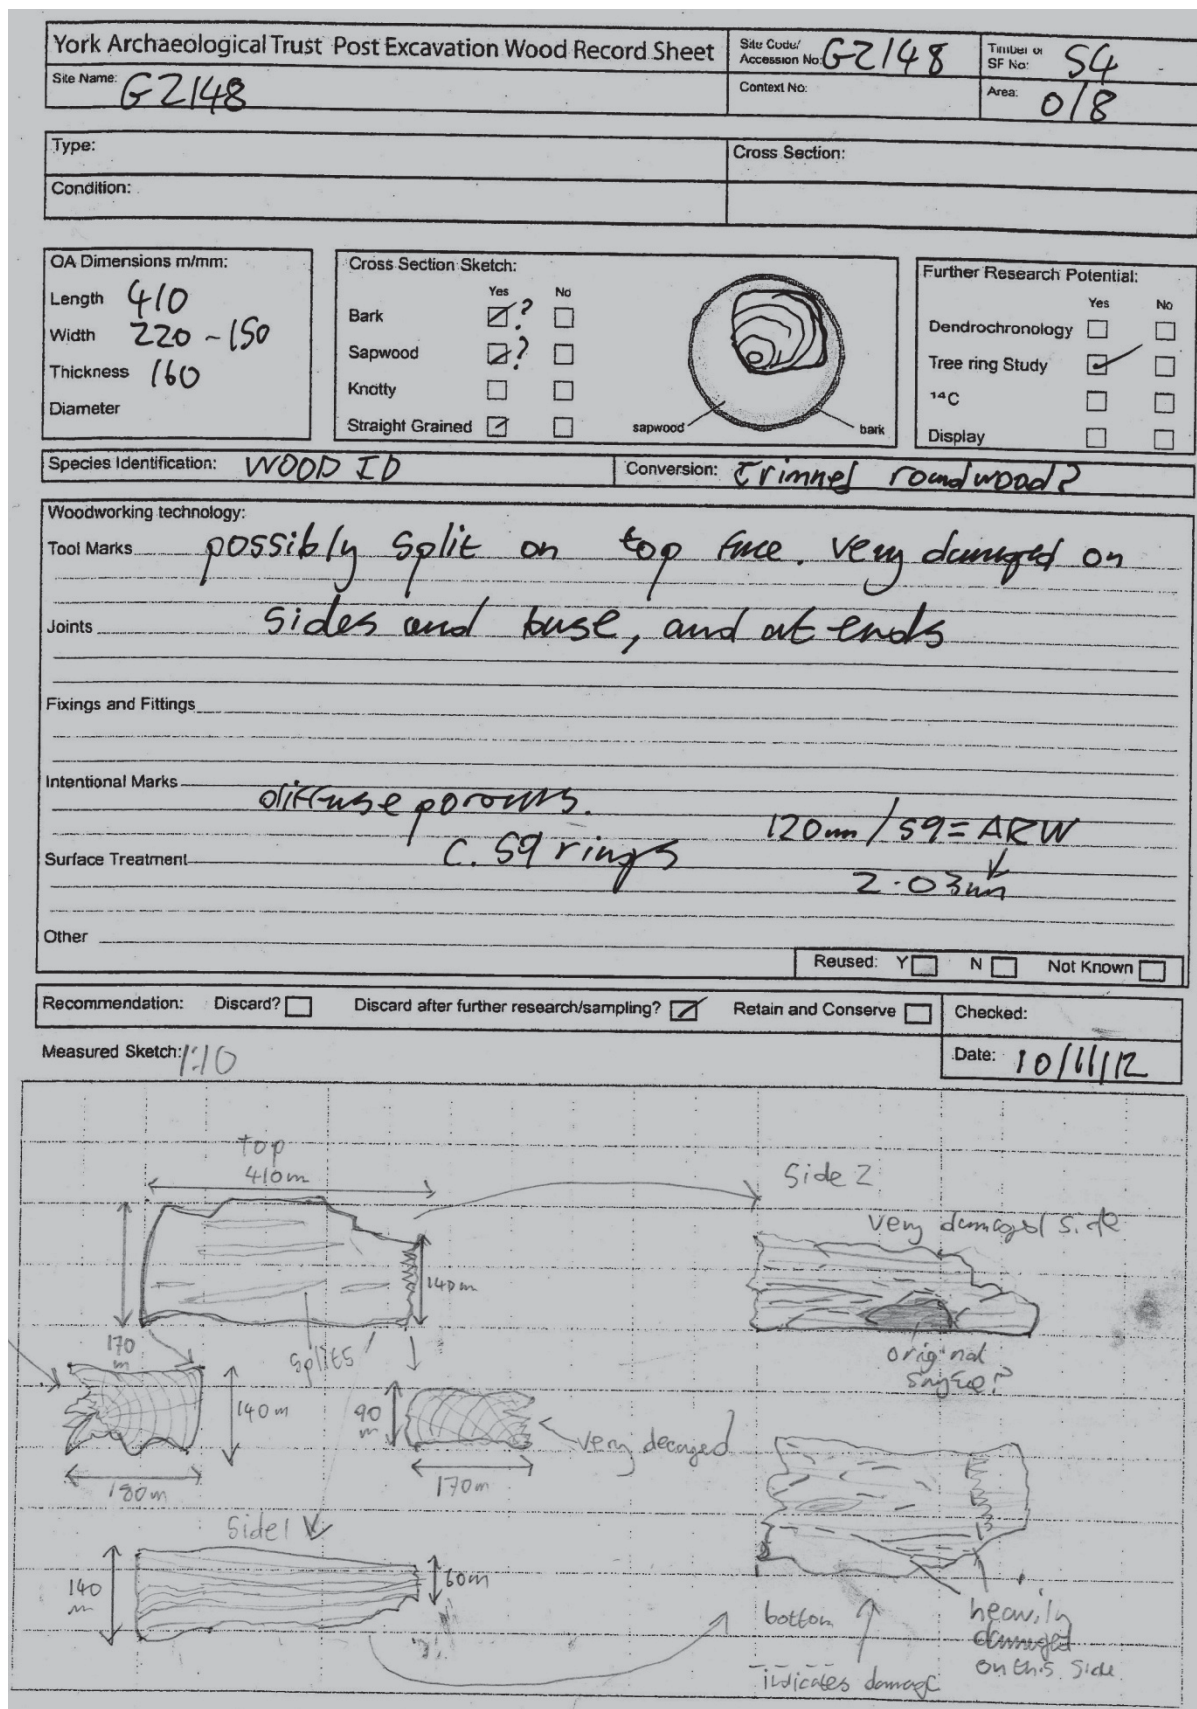 York Archaeological Trust Post Excavation Wood Record Sheet
Site Code/ Accession No: GZ148
Timber or SF No: S4
Site Name: GZ148
Context No:
Area: 0/8
Type:
Cross Section:
Condition:
OA Dimensions m/mm:
Length 410
Width 220 - 150
Thickness 160
Diameter
Cross Section Sketch:
Yes No
Bark ?
Sapwood ?
Knotty
Straight Grained
sapwood
bark
Further Research Potential:
Yes No
Dendrochronology
Tree ring Study
14C
Display
Species Identification: WOOD ID
Conversion: Trimmed roundwood?
Woodworking technology:
Tool Marks possibly split on top face. very damaged on
Joints sides and base, and at ends
Fixings and Fittings
Intentional Marks diffuse porous.
c. 59 rings
120mm / 59 = ARW
Surface Treatment
2.03mm
Other
Reused: Y N Not Known
Recommendation: Discard? Discard after further research/sampling? Retain and Conserve
Checked:
Measured Sketch: 1:10
Date: 10/11/12
top
410m
170
m
140m
splits
Side 2
very damaged side
original
surface?
140m
180m
90
m
170m
very decayed
Side 1
140
m
60m
bottom
indicates damage
heavily
damaged
on this side